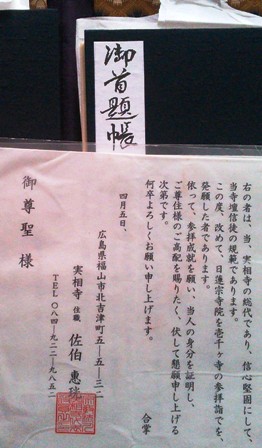 御首題帳
右の者は、当、実相寺の総代であり、信心堅固にして、
当寺壇信徒の規範であります。
この度、改めて、日蓮宗寺院を壱千ヶ寺の参拝詣でを、
発願した者であります。
依って、参拝成就を願い、当人の身分を証明し、
ご尊住様のご高配を賜りたく、伏して懇願申し上げる
次第です。
何卒よろしくお願い申し上げます。
合掌
四月五日、
広島県福山市北吉津町五-五-三二
実相寺 住職 佐伯 恵
TEL〇八四-九二二-九八五二
御尊聖様